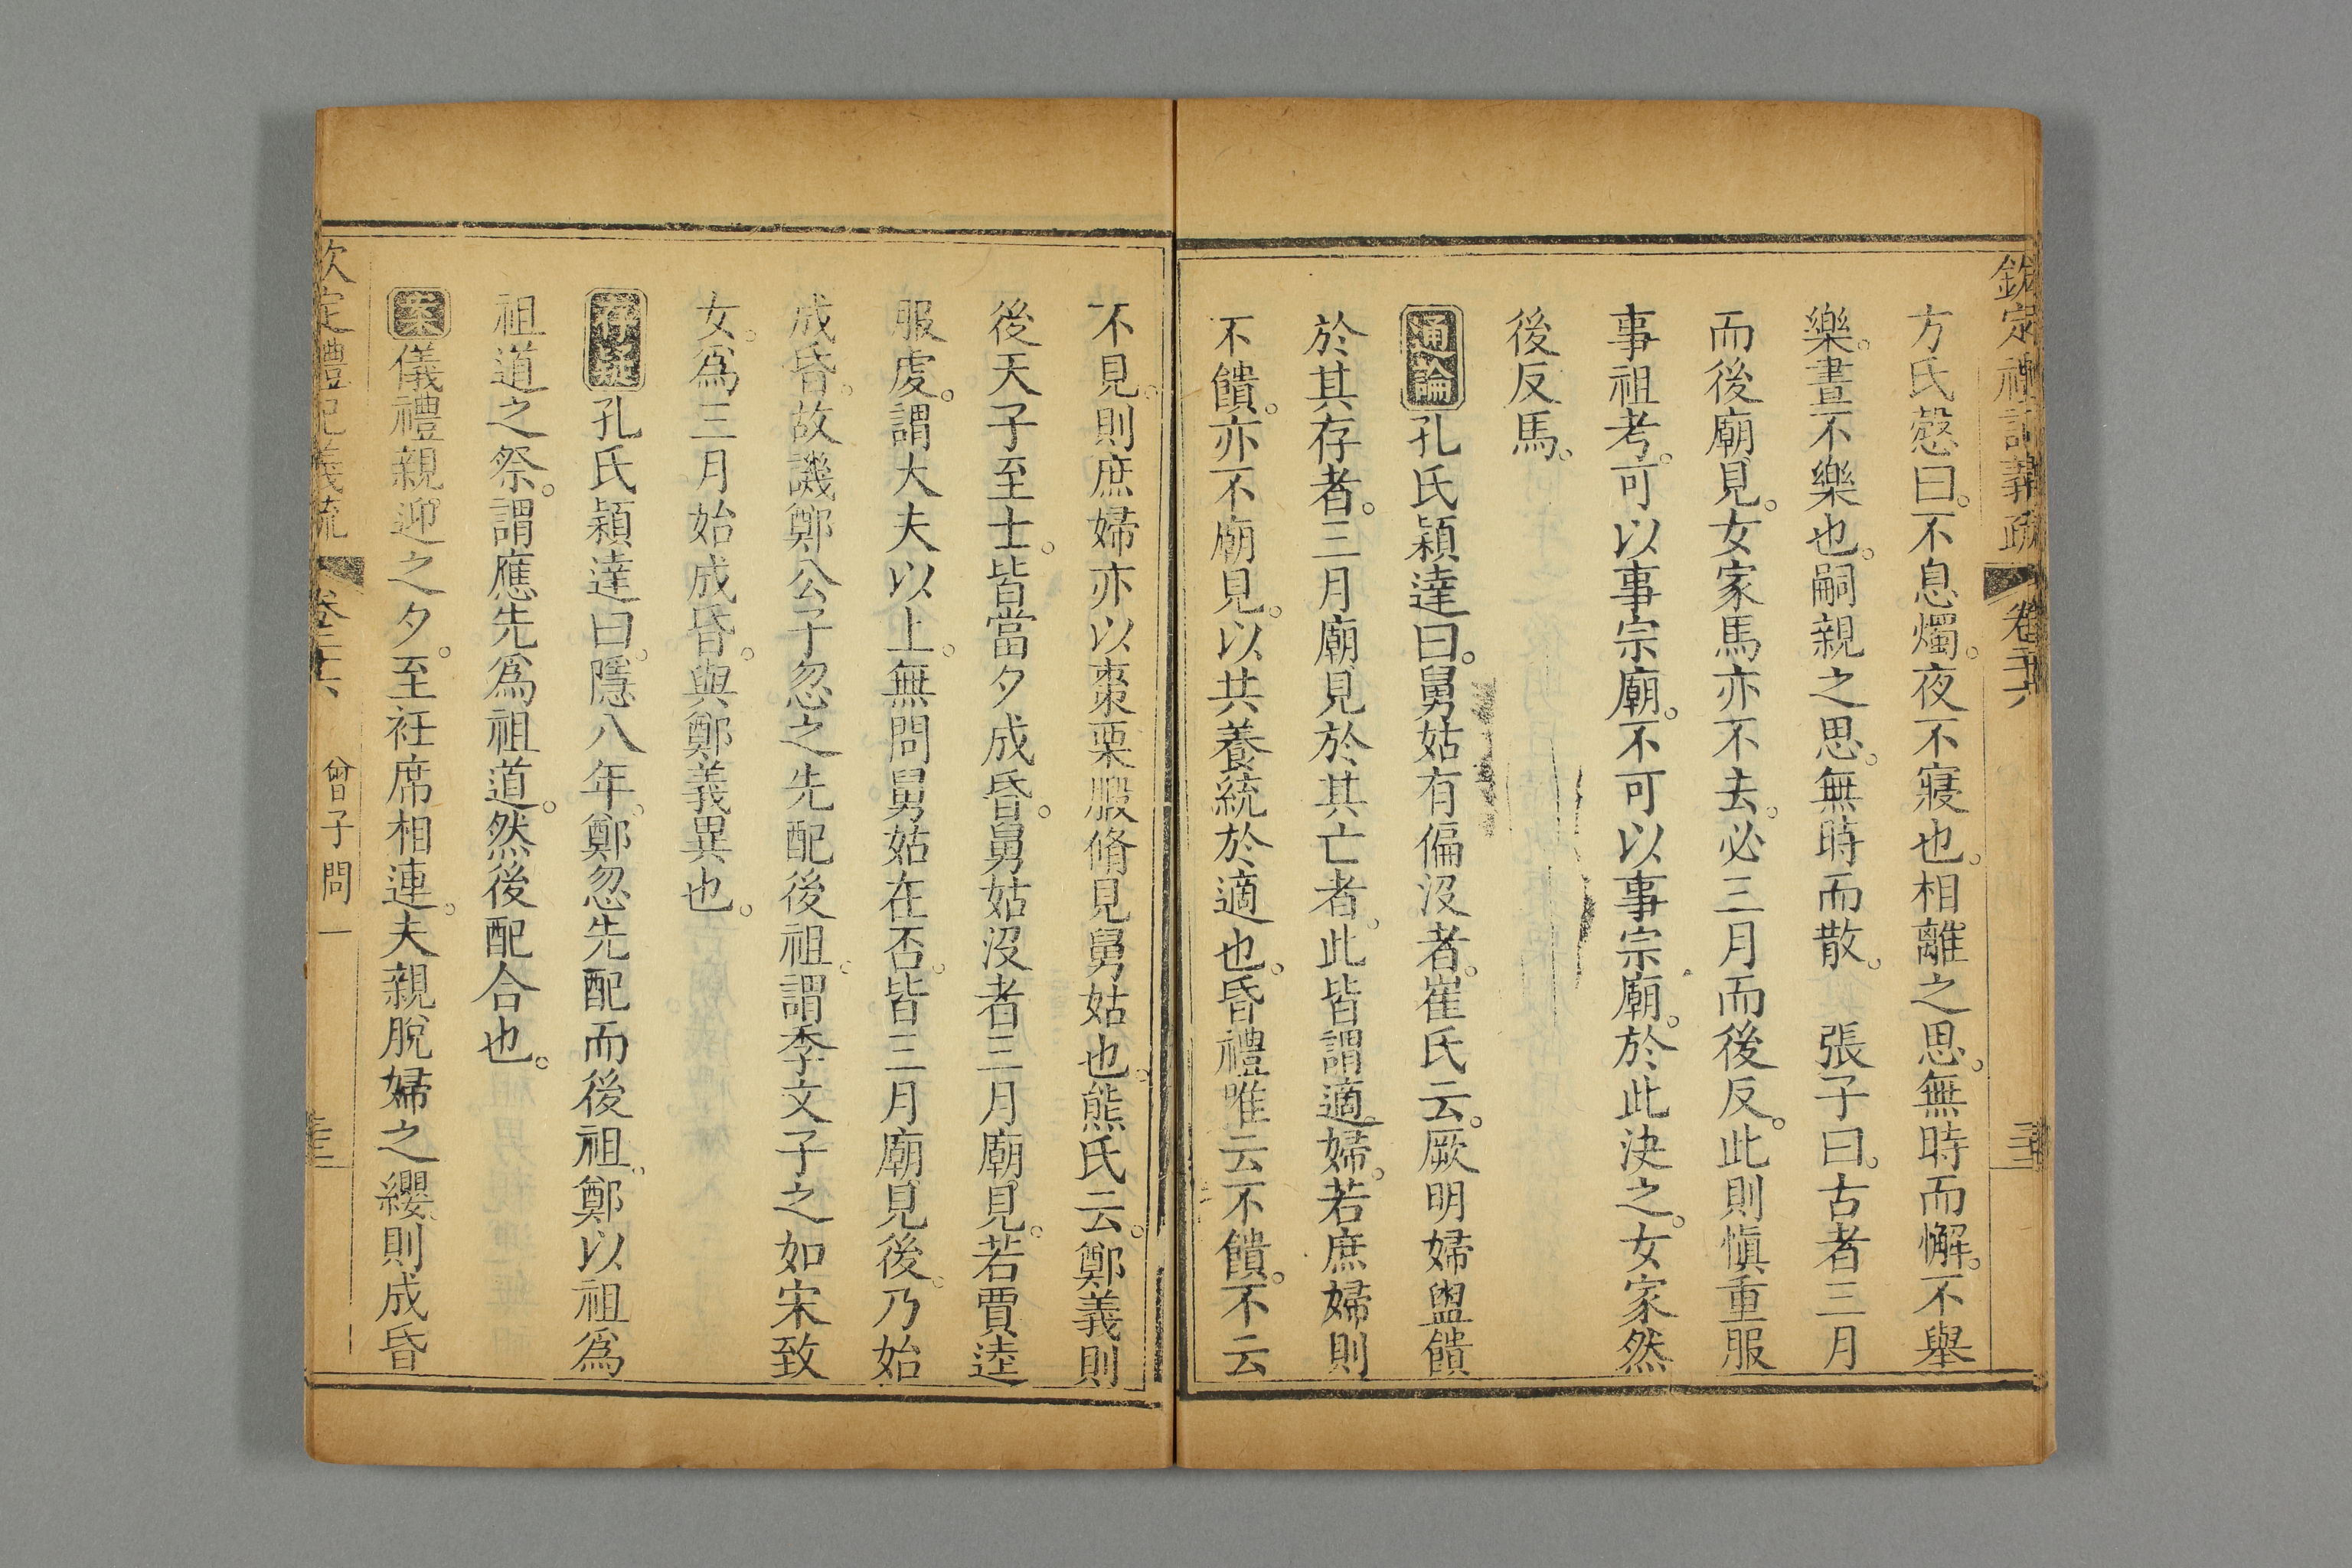 欽定禮記義疏 卷二十六
方氏慤曰。不息燭。夜不寢也。相離之思。無時而懈。不舉
樂。晝不樂也。嗣親之思。無時而散。 張子曰。古者三月
而後廟見。女家馬亦不去。必三月而後反。此則愼重服
事祖考。可以事宗廟。不可以事宗廟。於此決之。女家然
後反馬。
通論孔氏穎達曰。舅姑有偏沒者。崔氏云。厥明婦盥饋
於其存者。三月廟見於其亡者。此皆謂適婦。若庶婦則
不饋。亦不廟見。以共養統於適也。昏禮唯云不饋。不云
不見。則庶婦亦以棗栗腶脩見舅姑也。熊氏云。鄭義則
後天子至士。皆當夕成昏。舅姑沒者三月廟見。若賈逵
服虔。謂大夫以上。無問舅姑在否。皆三月廟見後。乃始
成昏。故譏鄭公子忽之先配後祖。謂季文子之如宋致
女。爲三月始成昏。與鄭義異也。
存疑孔氏穎達曰。隱八年。鄭忽先配而後祖。鄭以祖爲
祖道之祭。謂應先爲祖道。然後配合也。
案儀禮親迎之夕。至衽席相連。夫親脫婦之纓。則成昏
欽定禮記義疏 卷二十六 曾子問一